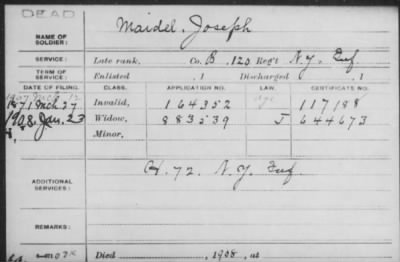 DEAD
NAME OF SOLDIER: Maidel, Joseph
SERVICE: Late rank, Co. B, 120 Reg't N.Y. Inf.
TERM OF SERVICE: Enlisted , 1 Discharged , 1
DATE OF FILING. CLASS. APPLICATION NO. LAW. CERTIFICATE NO.
1907 Mch 12
1871 Mch 27 Invalid, 164352 117188
1908. Jan. 23 Widow, 883539 J 644673
Minor,
ADDITIONAL SERVICES: H. 72. N.Y. Inf.
REMARKS:
Died , 1908, at